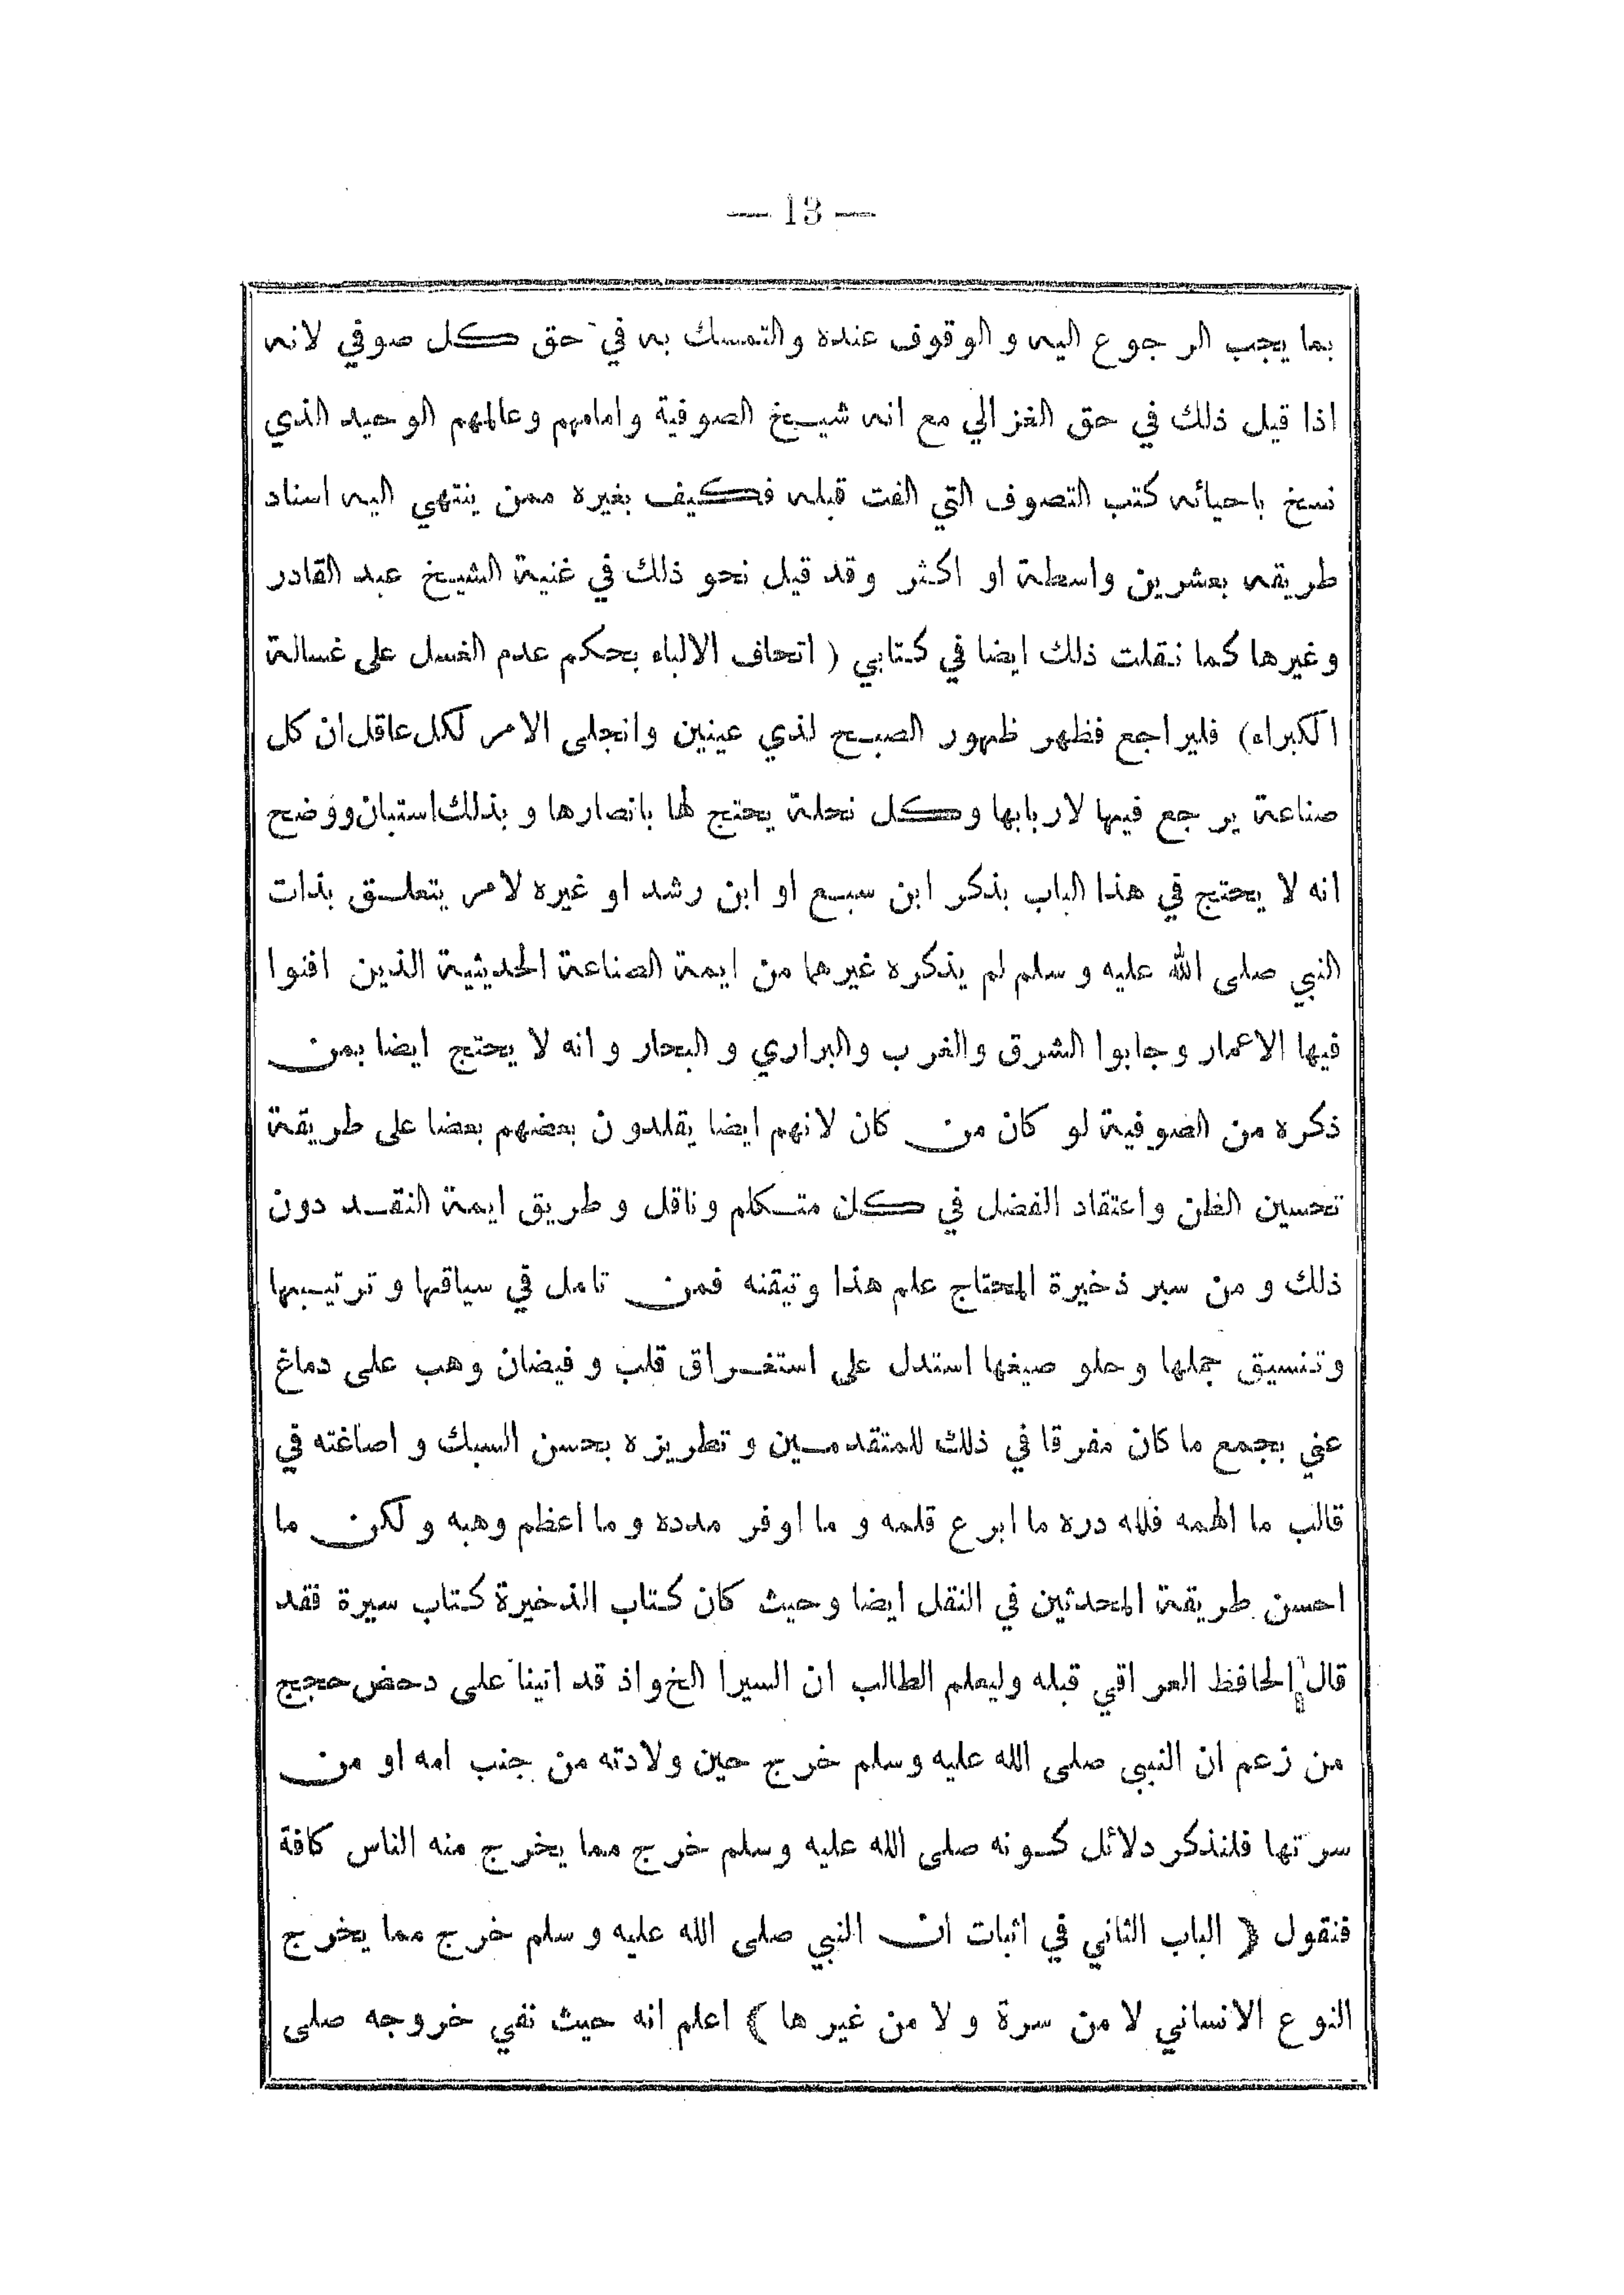 — 13 —
بما يجب الرجوع اليه والوقوف عنده والتمسك به في حق كل صوفي لانه
اذا قيل ذلك في حق الغزالي مع انه شيخ الصوفية وامامهم وعالمهم الوحيد الذي
نسخ باحيائه كتب التصوف التي الفت قبله فكيف بغيره ممن ينتهي اليه اسناد
طريقه بعشرين واسطة او اكثر وقد قيل نحو ذلك في غنية الشيخ عبد القادر
وغيرها كما نقلت ذلك ايضا في كتابي ( اتحاف الالباء بحكم عدم الغسل على غسالة
الكبراء) فليراجع فظهر ظهور الصبح لذي عينين وانجلى الامر لكل عاقل ان كل
صناعة يرجع فيها لاربابها وكل نحلة يحتج لها بانصارها وبذلك استبان ووضح
انه لا يحتج في هذا الباب بذكر ابن سبع او ابن رشد او غيره لامر يتعلق بذات
النبي صلى الله عليه وسلم لم يذكره غيرهما من ايمة الصناعة الحديثية الذين افنوا
فيها الاعمار وجابوا الشرق والغرب والبراري والبحار وانه لا يحتج ايضا بمن
ذكره من الصوفية لو كان من كان لانهم ايضا يقلدون بعضهم بعضا على طريقة
تحسين الظن واعتقاد الفضل في كل متكلم وناقل وطريق ايمة النقد دون
ذلك ومن سبر ذخيرة المحتاج علم هذا وتيقنه فمن تامل في سياقها وترتيبها
وتنسيق جملها وحلو صيغها استدل على استغراق قلب وفيضان وهب على دماغ
عني بجمع ما كان مفرقا في ذلك للمتقدمين وتطريزه بحسن السبك واصاغته في
قالب ما الهمه فلله دره ما ابرع قلمه وما اوفر مدده وما اعظم وهبه ولكن ما
احسن طريقة المحدثين في النقل ايضا وحيث كان كتاب الذخيرة كتاب سيرة فقد
قال الحافظ العراقي قبله وليعلم الطالب ان السيرا الخ واذ قد اتينا على دحض حجج
من زعم ان النبي صلى الله عليه وسلم خرج حين ولادته من جنب امه او من
سرتها فلنذكر دلائل كونه صلى الله عليه وسلم خرج مما يخرج منه الناس كافة
فنقول ( الباب الثاني في اثبات ان النبي صلى الله عليه وسلم خرج مما يخرج
النوع الانساني لا من سرة ولا من غيرها ) اعلم انه حيث نفي خروجه صلى